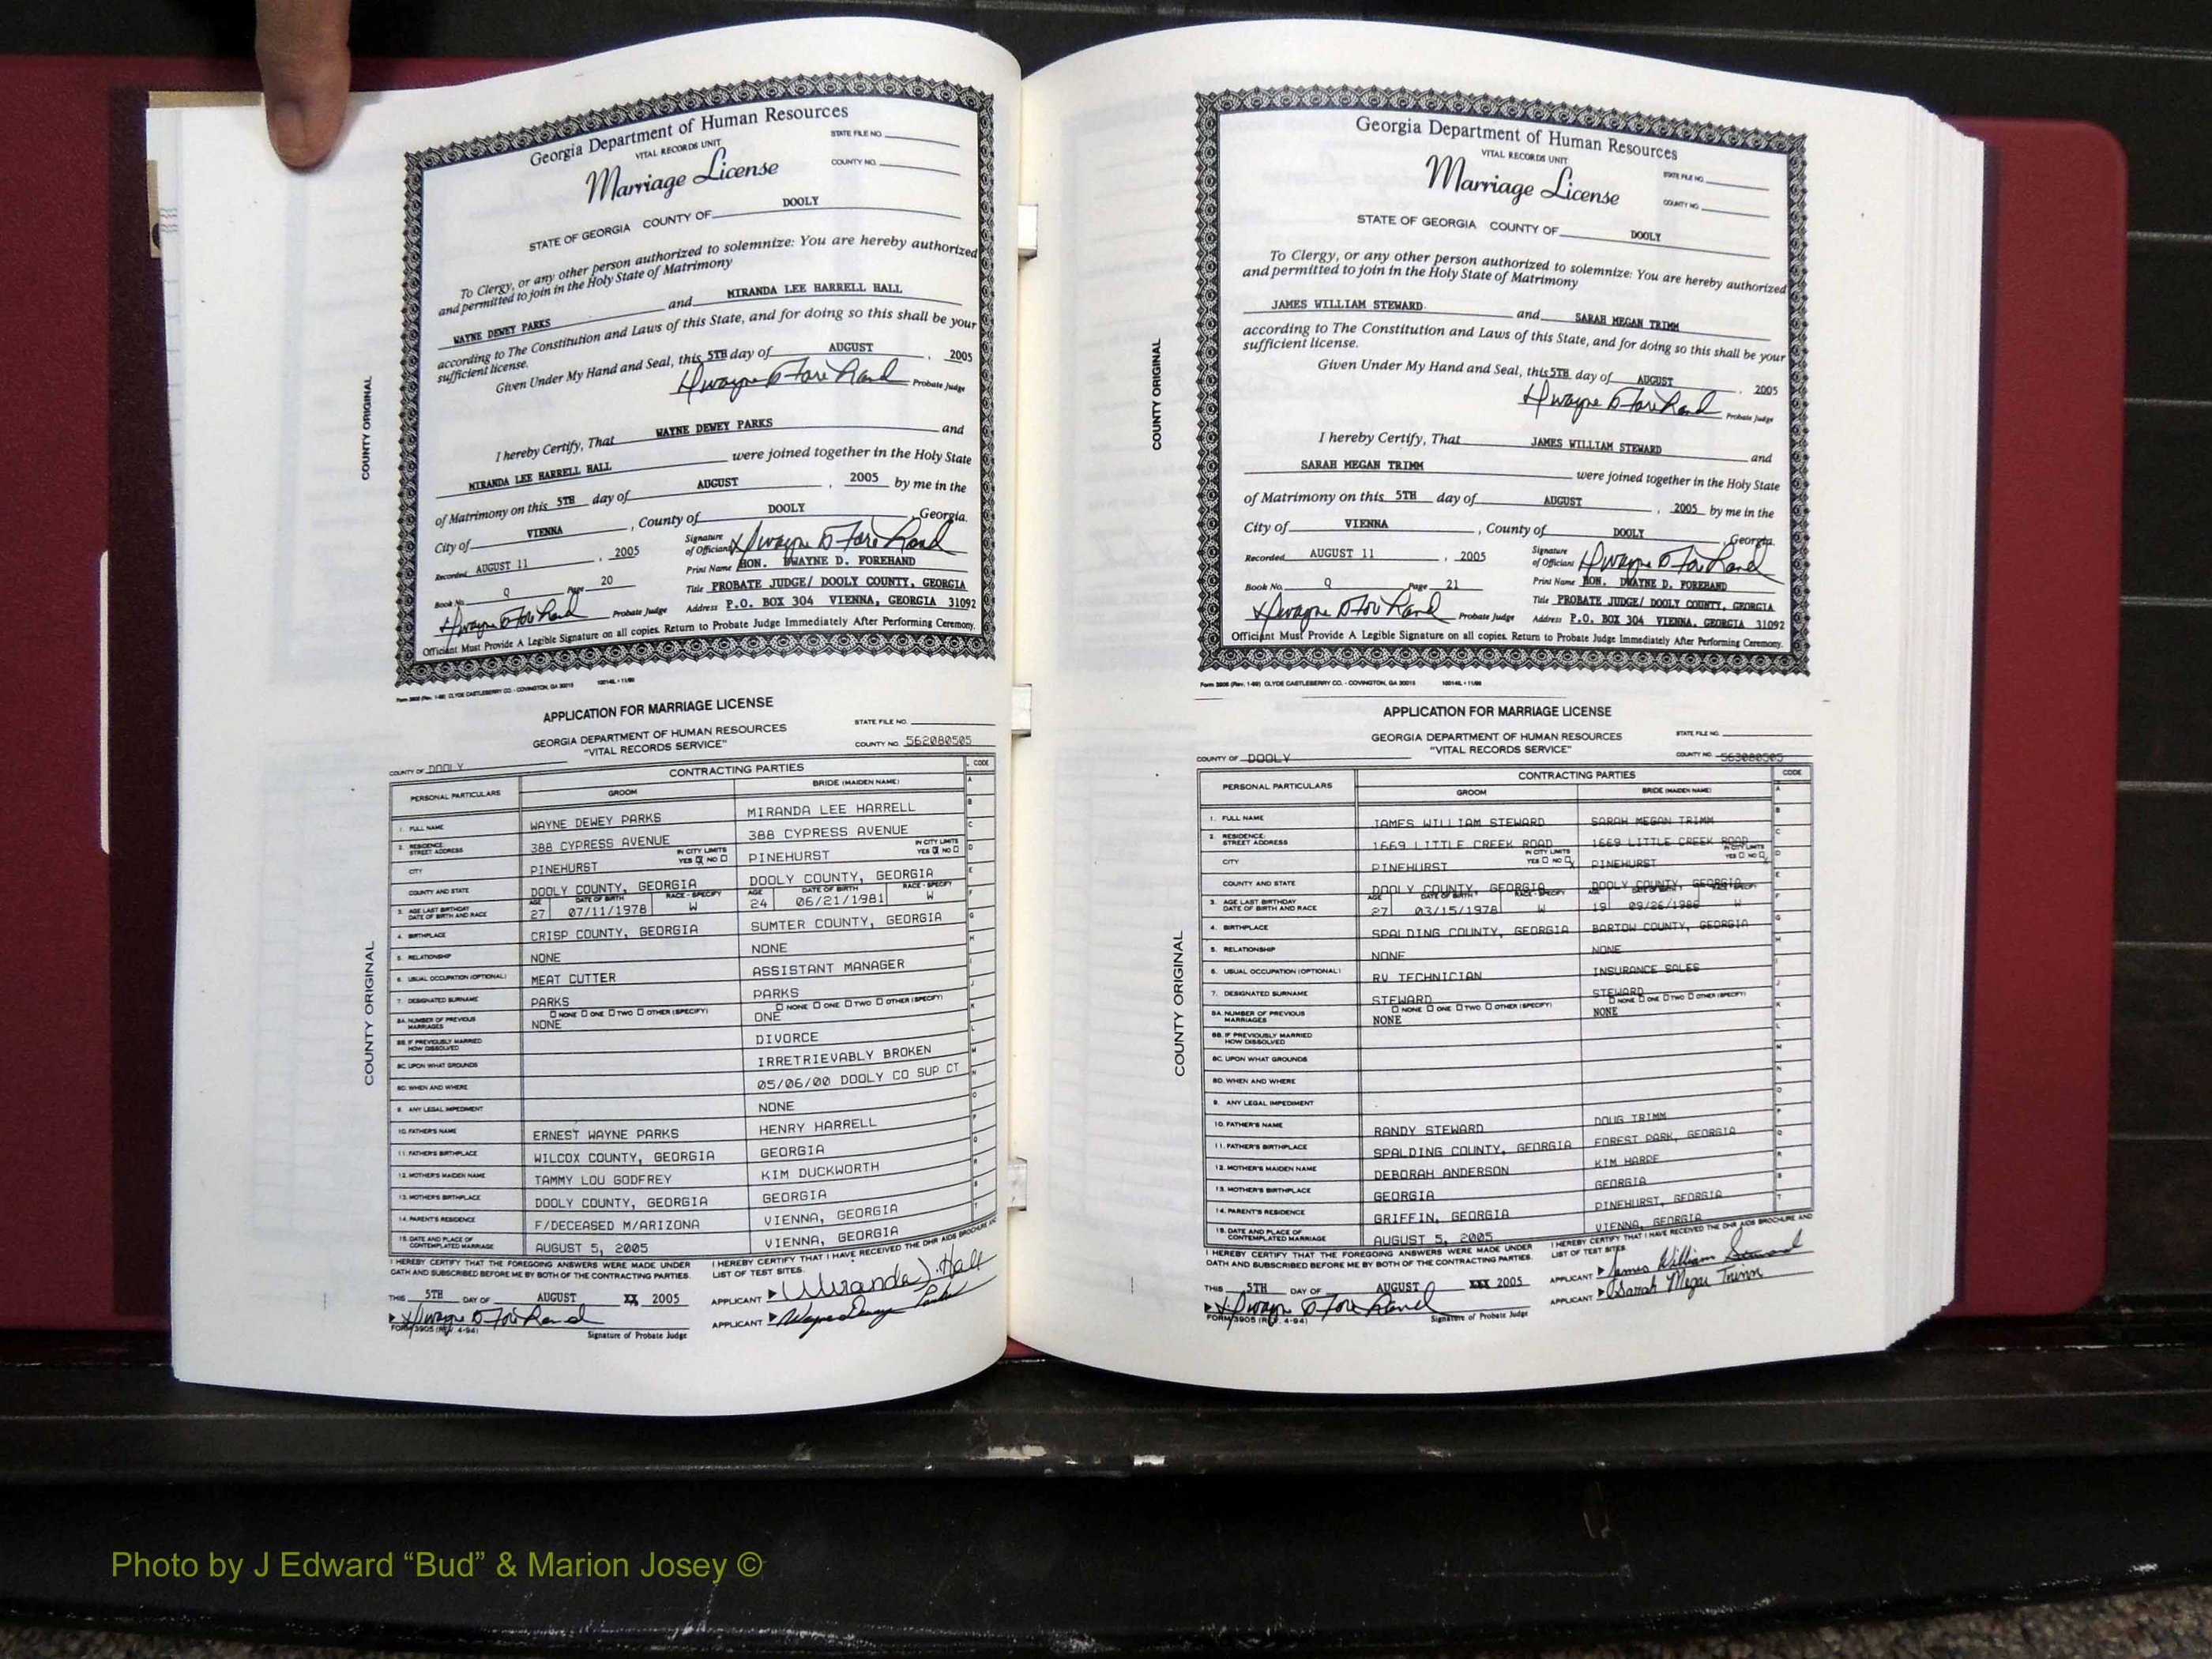 Georgia Department of Human Resources
VITAL RECORDS UNIT
STATE FILE NO.
Marriage License
COUNTY NO.
STATE OF GEORGIA COUNTY OF DOOLY
To Clergy, or any other person authorized to solemnize: You are hereby authorized
and permitted to join in the Holy State of Matrimony
WAYNE DEWEY PARKS and MIRANDA LEE HARRELL HALL
according to The Constitution and Laws of this State, and for doing so this shall be your
sufficient license.
Given Under My Hand and Seal, this 5TH day of AUGUST , 2005
Probate Judge
I hereby Certify, That WAYNE DEWEY PARKS and
MIRANDA LEE HARRELL HALL were joined together in the Holy State
of Matrimony on this 5TH day of AUGUST , 2005 by me in the
City of VIENNA , County of DOOLY , Georgia.
Recorded AUGUST 11 , 2005
Signature of Officiant
Print Name HON. DWAYNE D. FOREHAND
Book No. Q Page 20
Title PROBATE JUDGE/ DOOLY COUNTY, GEORGIA
Probate Judge Address P.O. BOX 304 VIENNA, GEORGIA 31092
Officiant Must Provide A Legible Signature on all copies. Return to Probate Judge Immediately After Performing Ceremony.
COUNTY ORIGINAL
Form 3908 (Rev. 1-89) CLYDE CASTLEBERRY CO. - COVINGTON, GA 30015
APPLICATION FOR MARRIAGE LICENSE
GEORGIA DEPARTMENT OF HUMAN RESOURCES
"VITAL RECORDS SERVICE"
STATE FILE NO.
COUNTY NO. 562080505
COUNTY OF DOOLY
CONTRACTING PARTIES CODE
PERSONAL PARTICULARS GROOM BRIDE (MAIDEN NAME)
1. FULL NAME WAYNE DEWEY PARKS MIRANDA LEE HARRELL
2. RESIDENCE: STREET ADDRESS 388 CYPRESS AVENUE 388 CYPRESS AVENUE
CITY PINEHURST IN CITY LIMITS YES NO PINEHURST IN CITY LIMITS YES NO
COUNTY AND STATE DOOLY COUNTY, GEORGIA DOOLY COUNTY, GEORGIA
3. AGE LAST BIRTHDAY DATE OF BIRTH AND RACE AGE 27 DATE OF BIRTH 07/11/1978 RACE - SPECIFY W AGE 24 DATE OF BIRTH 06/21/1981 RACE - SPECIFY W
4. BIRTHPLACE CRISP COUNTY, GEORGIA SUMTER COUNTY, GEORGIA
5. RELATIONSHIP NONE NONE
6. USUAL OCCUPATION (OPTIONAL) MEAT CUTTER ASSISTANT MANAGER
7. DESIGNATED SURNAME PARKS PARKS
8A. NUMBER OF PREVIOUS MARRIAGES NONE ONE TWO OTHER (SPECIFY) NONE NONE ONE TWO OTHER (SPECIFY) ONE
8B. IF PREVIOUSLY MARRIED HOW DISSOLVED DIVORCE
8C. UPON WHAT GROUNDS IRRETRIEVABLY BROKEN
8D. WHEN AND WHERE 05/06/00 DOOLY CO SUP CT
9. ANY LEGAL IMPEDIMENT NONE
10. FATHER'S NAME ERNEST WAYNE PARKS HENRY HARRELL
11. FATHER'S BIRTHPLACE WILCOX COUNTY, GEORGIA GEORGIA
12. MOTHER'S MAIDEN NAME TAMMY LOU GODFREY KIM DUCKWORTH
13. MOTHER'S BIRTHPLACE DOOLY COUNTY, GEORGIA GEORGIA
14. PARENT'S RESIDENCE F/DECEASED M/ARIZONA VIENNA, GEORGIA
15. DATE AND PLACE OF CONTEMPLATED MARRIAGE AUGUST 5, 2005 VIENNA, GEORGIA
I HEREBY CERTIFY THAT THE FOREGOING ANSWERS WERE MADE UNDER
OATH AND SUBSCRIBED BEFORE ME BY BOTH OF THE CONTRACTING PARTIES.
I HEREBY CERTIFY THAT I HAVE RECEIVED THE DHR AIDS BROCHURE AND
LIST OF TEST SITES.
THIS 5TH DAY OF AUGUST XX 2005
APPLICANT Miranda J. Hall
APPLICANT Wayne Dewey Parks
FORM 3905 (REV. 4-94) Signature of Probate Judge
COUNTY ORIGINAL
Georgia Department of Human Resources
VITAL RECORDS UNIT
STATE FILE NO.
Marriage License
COUNTY NO.
STATE OF GEORGIA COUNTY OF DOOLY
To Clergy, or any other person authorized to solemnize: You are hereby authorized
and permitted to join in the Holy State of Matrimony
JAMES WILLIAM STEWARD and SARAH MEGAN TRIMM
according to The Constitution and Laws of this State, and for doing so this shall be your
sufficient license.
Given Under My Hand and Seal, this 5TH day of AUGUST , 2005
Probate Judge
I hereby Certify, That JAMES WILLIAM STEWARD and
SARAH MEGAN TRIMM were joined together in the Holy State
of Matrimony on this 5TH day of AUGUST , 2005 by me in the
City of VIENNA , County of DOOLY , Georgia.
Recorded AUGUST 11 , 2005
Signature of Officiant
Print Name HON. DWAYNE D. FOREHAND
Book No. Q Page 21
Title PROBATE JUDGE/ DOOLY COUNTY, GEORGIA
Probate Judge Address P.O. BOX 304 VIENNA, GEORGIA 31092
Officiant Must Provide A Legible Signature on all copies. Return to Probate Judge Immediately After Performing Ceremony.
COUNTY ORIGINAL
Form 3908 (Rev. 1-89) CLYDE CASTLEBERRY CO. - COVINGTON, GA 30015
APPLICATION FOR MARRIAGE LICENSE
GEORGIA DEPARTMENT OF HUMAN RESOURCES
"VITAL RECORDS SERVICE"
STATE FILE NO.
COUNTY NO. 563080505
COUNTY OF DOOLY
CONTRACTING PARTIES CODE
PERSONAL PARTICULARS GROOM BRIDE (MAIDEN NAME)
1. FULL NAME JAMES WILLIAM STEWARD SARAH MEGAN TRIMM
2. RESIDENCE: STREET ADDRESS 1669 LITTLE CREEK ROAD 1669 LITTLE CREEK ROAD
CITY PINEHURST IN CITY LIMITS YES NO PINEHURST IN CITY LIMITS YES NO
COUNTY AND STATE DOOLY COUNTY, GEORGIA DOOLY COUNTY, GEORGIA
3. AGE LAST BIRTHDAY DATE OF BIRTH AND RACE AGE 27 DATE OF BIRTH 03/15/1978 RACE - SPECIFY W AGE 19 DATE OF BIRTH 09/26/1986 RACE - SPECIFY W
4. BIRTHPLACE SPALDING COUNTY, GEORGIA BARTOW COUNTY, GEORGIA
5. RELATIONSHIP NONE NONE
6. USUAL OCCUPATION (OPTIONAL) RV TECHNICIAN INSURANCE SALES
7. DESIGNATED SURNAME STEWARD STEWARD
8A. NUMBER OF PREVIOUS MARRIAGES NONE ONE TWO OTHER (SPECIFY) NONE NONE ONE TWO OTHER (SPECIFY) NONE
8B. IF PREVIOUSLY MARRIED HOW DISSOLVED
8C. UPON WHAT GROUNDS
8D. WHEN AND WHERE
9. ANY LEGAL IMPEDIMENT
10. FATHER'S NAME RANDY STEWARD DOUG TRIMM
11. FATHER'S BIRTHPLACE SPALDING COUNTY, GEORGIA FOREST PARK, GEORGIA
12. MOTHER'S MAIDEN NAME DEBORAH ANDERSON KIM HARPE
13. MOTHER'S BIRTHPLACE GEORGIA GEORGIA
14. PARENT'S RESIDENCE GRIFFIN, GEORGIA PINEHURST, GEORGIA
15. DATE AND PLACE OF CONTEMPLATED MARRIAGE AUGUST 5, 2005 VIENNA, GEORGIA
I HEREBY CERTIFY THAT THE FOREGOING ANSWERS WERE MADE UNDER
OATH AND SUBSCRIBED BEFORE ME BY BOTH OF THE CONTRACTING PARTIES.
I HEREBY CERTIFY THAT I HAVE RECEIVED THE DHR AIDS BROCHURE AND
LIST OF TEST SITES.
THIS 5TH DAY OF AUGUST XXX 2005
APPLICANT James William Steward
APPLICANT Sarah Megan Trimm
FORM 3905 (REV. 4-94) Signature of Probate Judge
COUNTY ORIGINAL
Photo by J Edward “Bud” & Marion Josey ©